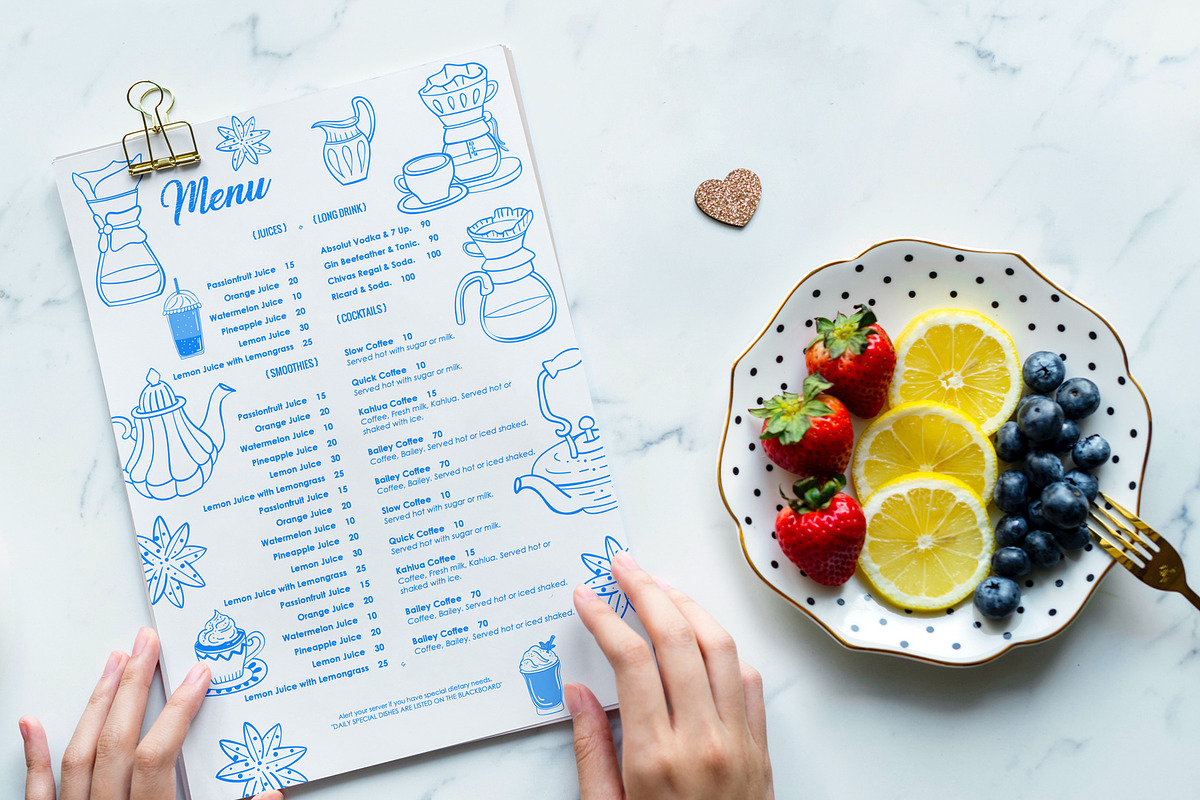 Menu
{JUICES}
Passionfruit Juice 15
Orange Juice 20
Watermelon Juice 10
Pineapple Juice 20
Lemon Juice 30
Lemon Juice with Lemongrass 25
{SMOOTHIES}
Passionfruit Juice 15
Orange Juice 20
Watermelon Juice 10
Pineapple Juice 20
Lemon Juice 30
Lemon Juice with Lemongrass 25
Passionfruit Juice 15
Orange Juice 20
Watermelon Juice 10
Pineapple Juice 20
Lemon Juice 30
Lemon Juice with Lemongrass 25
Passionfruit Juice 15
Orange Juice 20
Watermelon Juice 10
Pineapple Juice 20
Lemon Juice 30
Lemon Juice with Lemongrass 25
{LONG DRINK}
Absolut Vodka & 7 Up. 90
Gin Beefeather & Tonic. 90
Chivas Regal & Soda. 100
Ricard & Soda. 100
{COCKTAILS}
Slow Coffee 10
Served hot with sugar or milk.
Quick Coffee 10
Served hot with sugar or milk.
Kahlua Coffee 15
Coffee, Fresh milk, Kahlua. Served hot or
shaked with ice.
Bailey Coffee 70
Coffee, Bailey. Served hot or iced shaked.
Bailey Coffee 70
Coffee, Bailey. Served hot or iced shaked.
Slow Coffee 10
Served hot with sugar or milk.
Quick Coffee 10
Served hot with sugar or milk.
Kahlua Coffee 15
Coffee, Fresh milk, Kahlua. Served hot or
shaked with ice.
Bailey Coffee 70
Coffee, Bailey. Served hot or iced shaked.
Bailey Coffee 70
Coffee, Bailey. Served hot or iced shaked.
Alert your server if you have special dietary needs.
"DAILY SPECIAL DISHES ARE LISTED ON THE BLACKBOARD"